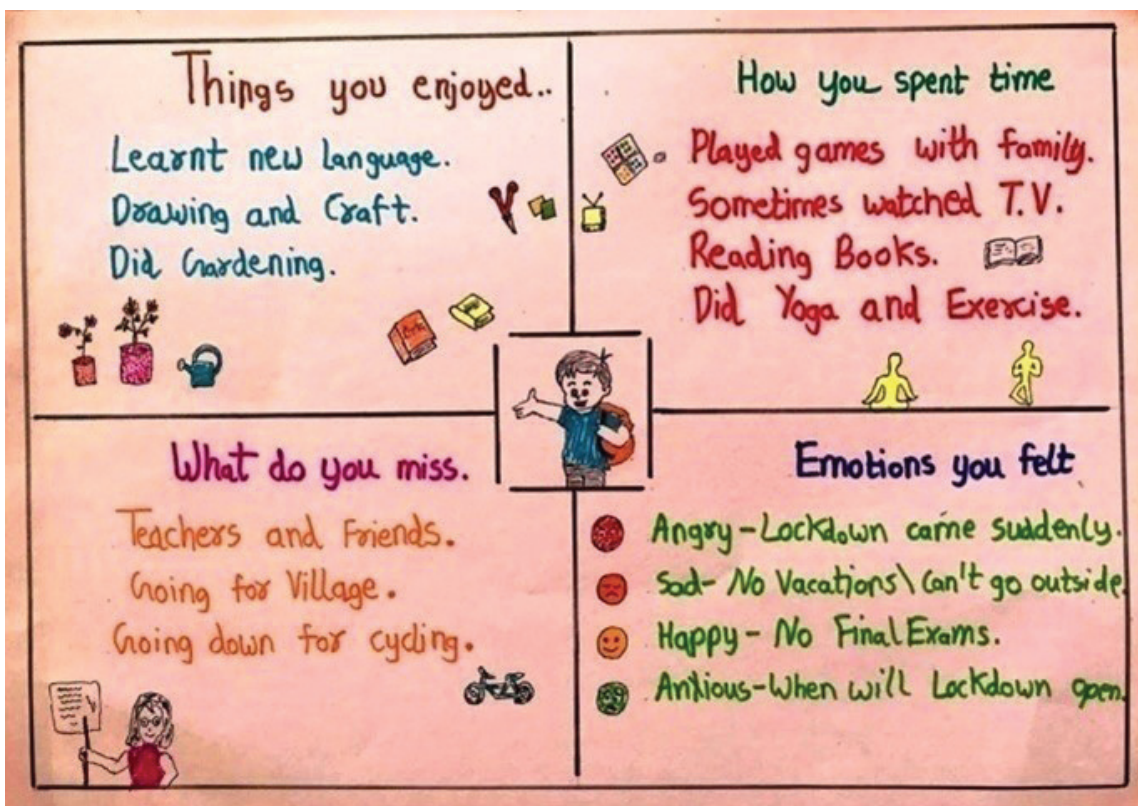 Things you enjoyed..
Learnt new language.
Drawing and Craft.
Did Gardening.
How you spent time
Played games with family.
Sometimes watched T.V.
Reading Books.
Did Yoga and Exercise.
What do you miss.
Teachers and Friends.
Going for Village.
Going down for cycling.
Emotions you felt
Angry-Lockdown came suddenly.
Sad- No Vacations\Can't go outside.
Happy- No Final Exams.
Anxious-When will Lockdown open.